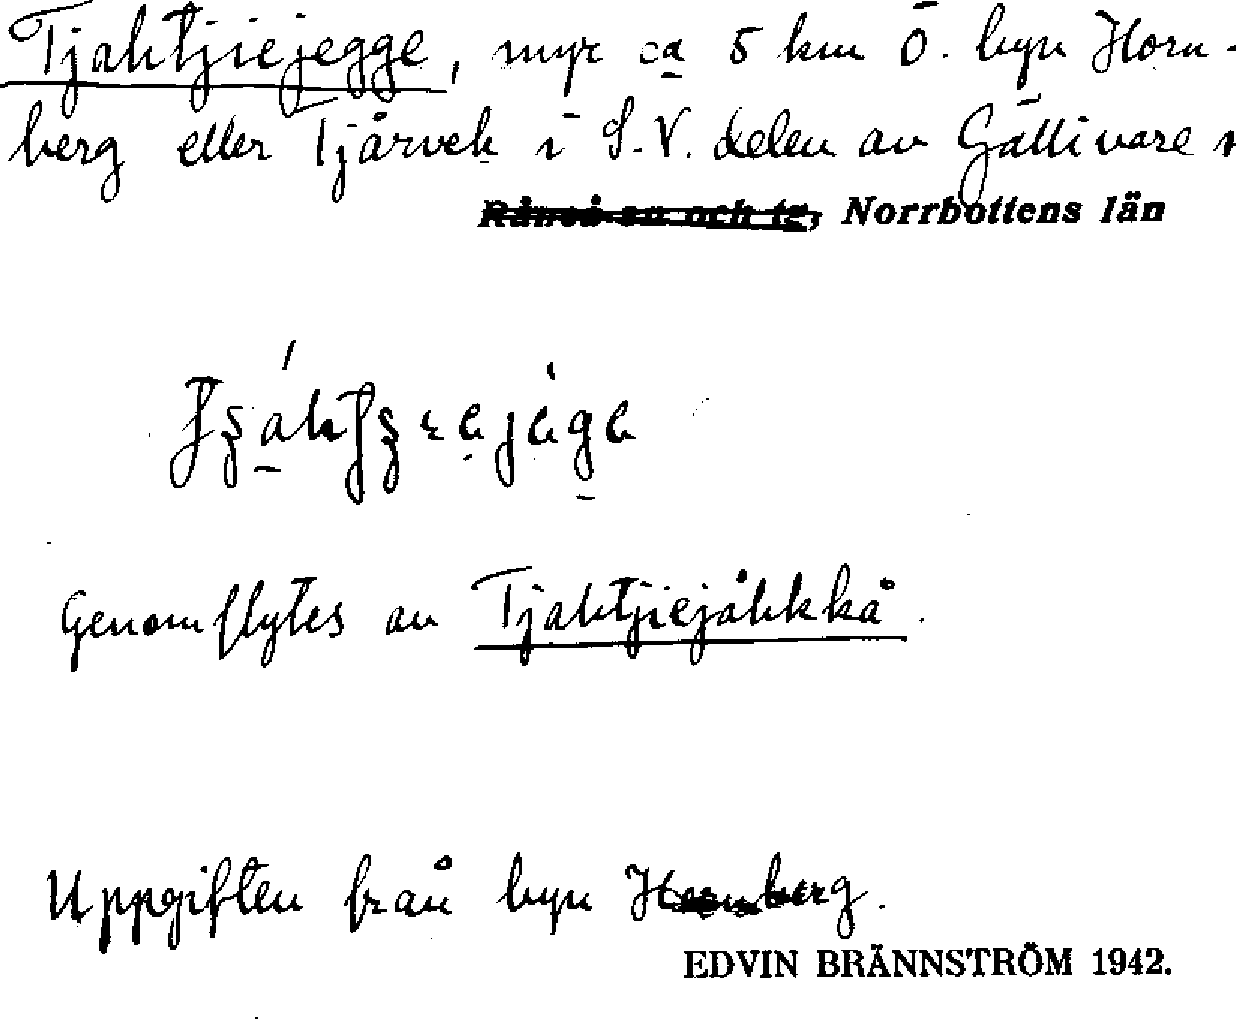 Tjahtjiejegge, myr ca 5 km Ö. byn Horn-
berg eller Tjårvek i S.V. delen av Gällivare s
Råneå sn och tg, Norrbottens län
Genomflytes av Tjahtjiejåhkkå.
Uppgiften från byn Hornberg.
EDVIN BRÄNNSTRÖM 1942.